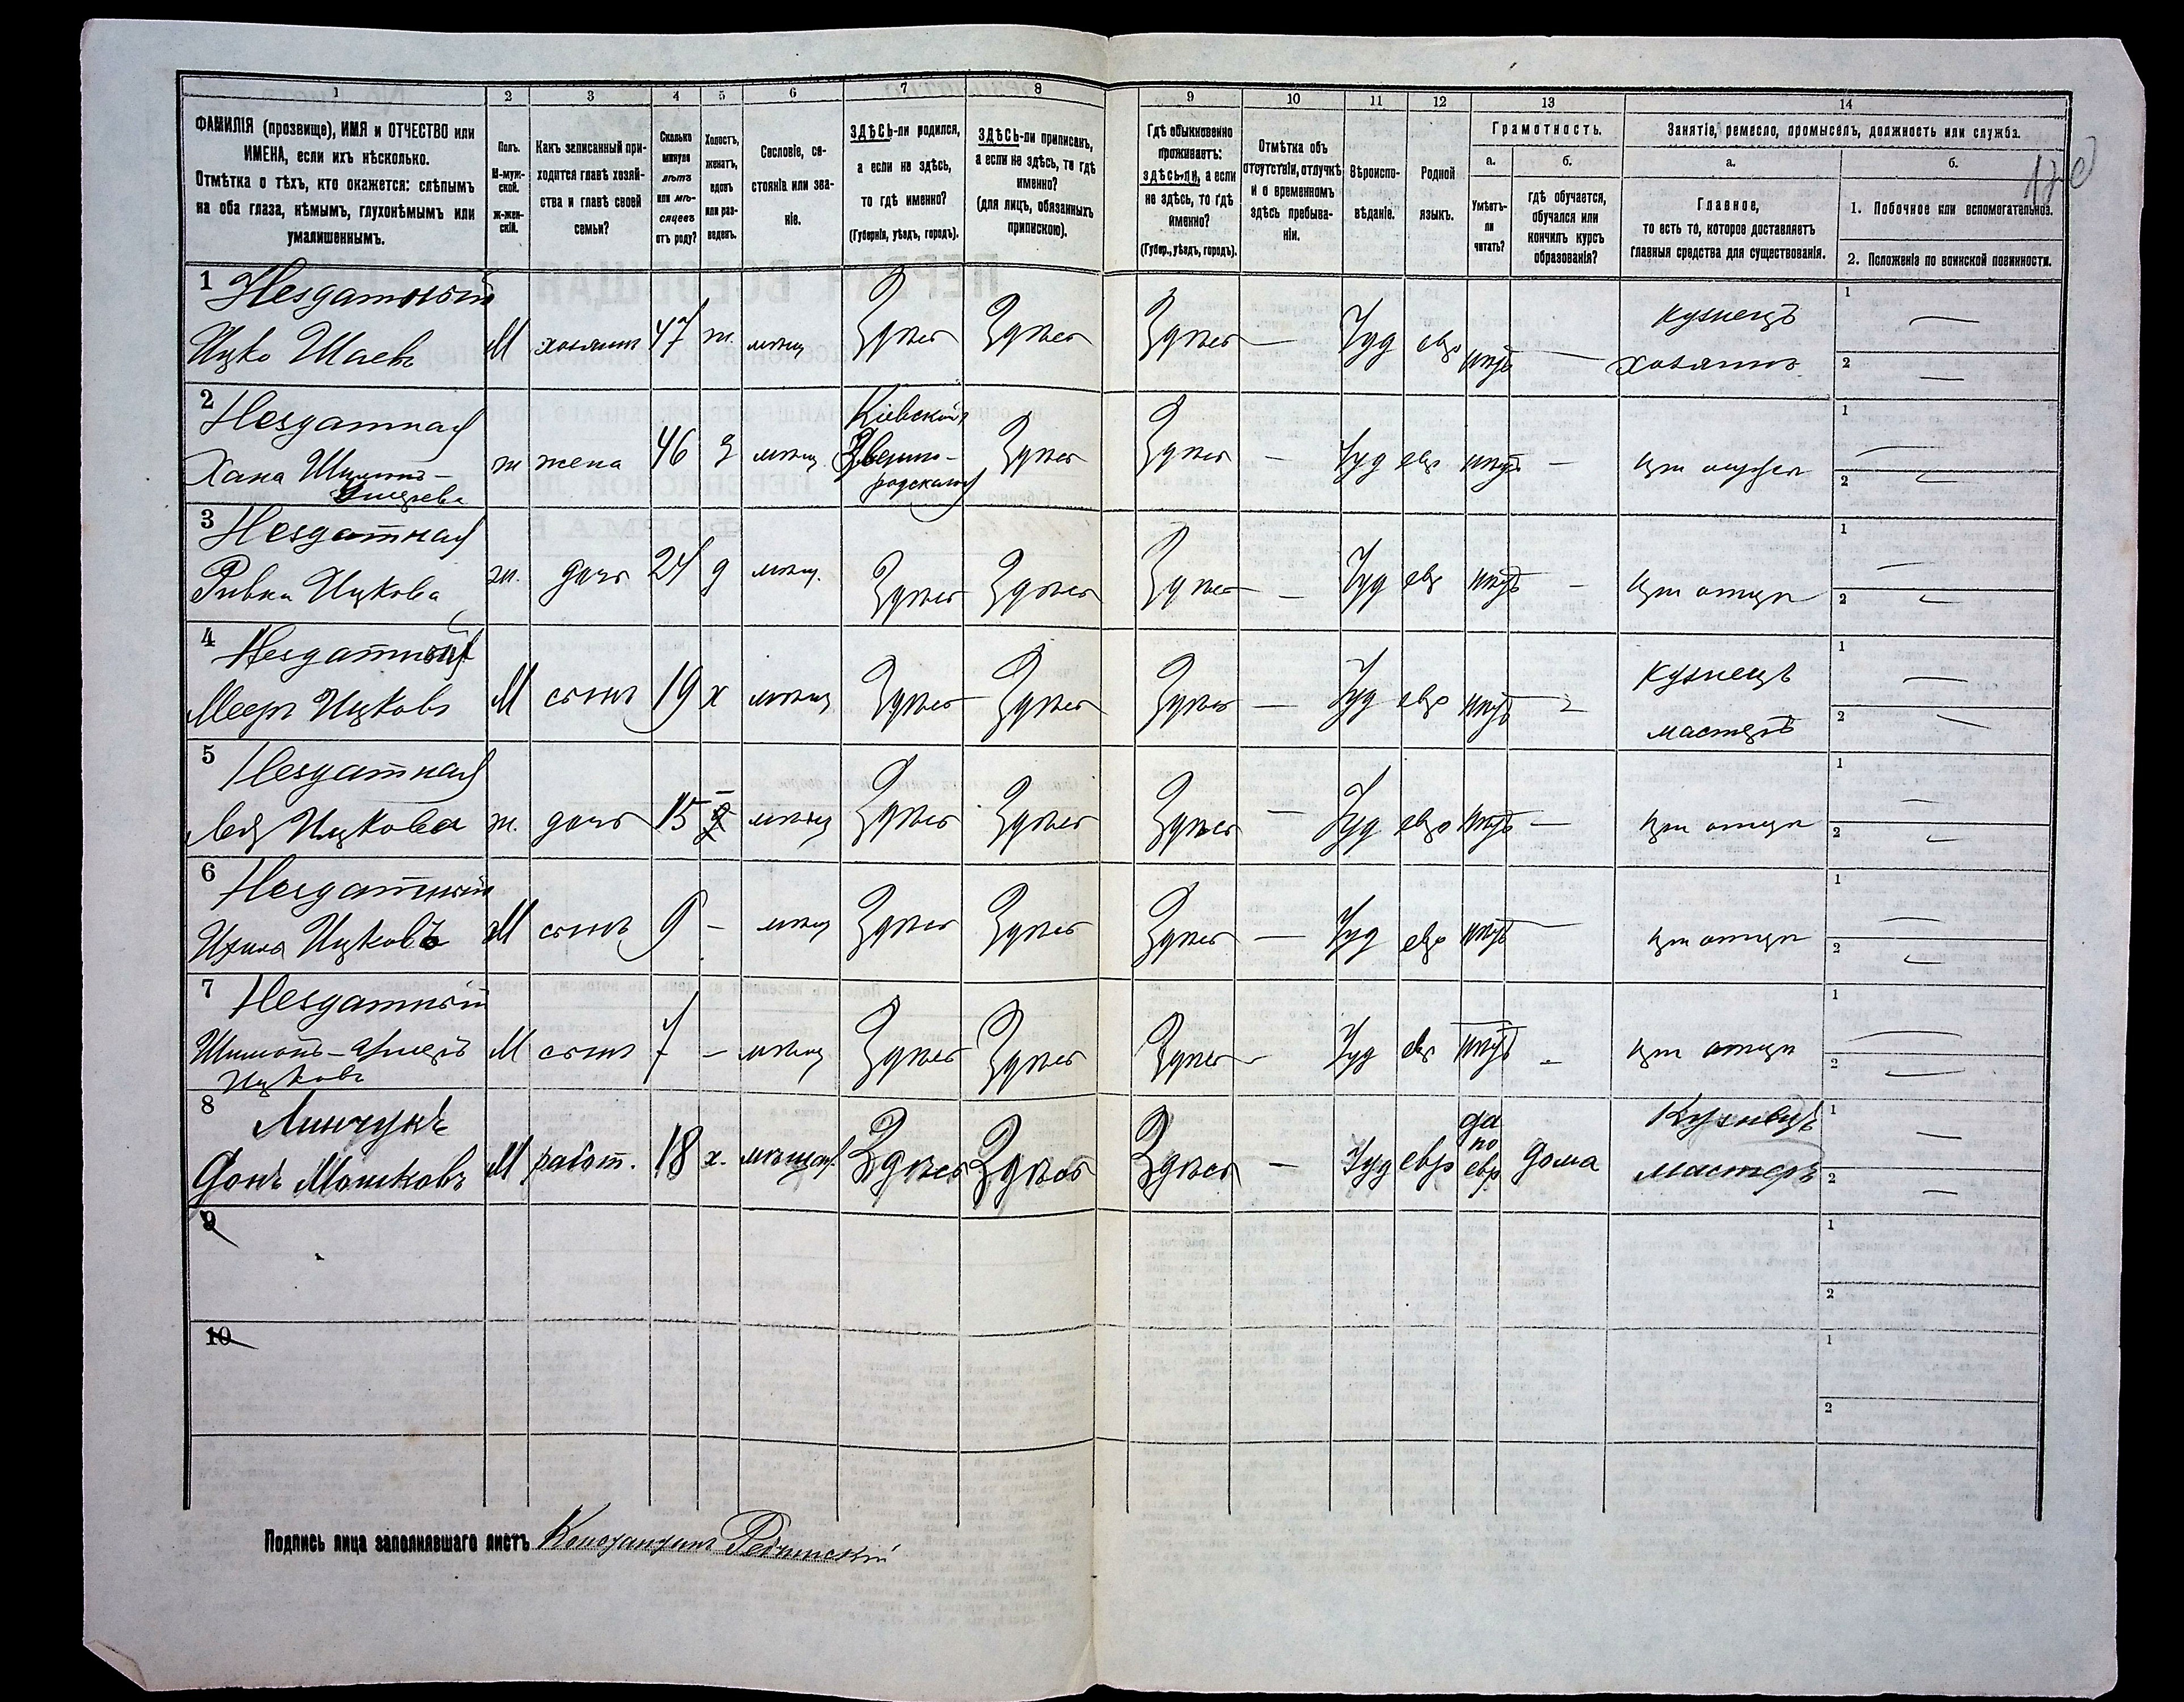 1 2 3 4 5 6 7 8 9 10 11 12 13 14
ФАМИЛІЯ (прозвище), ИМЯ и ОТЧЕСТВО или
ИМЕНА, если ихъ нѣсколько.
Отмѣтка о тѣхъ, кто окажется: слѣпымъ
на оба глаза, нѣмымъ, глухонѣмымъ или
умалишеннымъ.
Полъ.
М-муж-
ской.
Ж-жен-
скій.
Какъ записанный при-
ходится главѣ хозяй-
ства и главѣ своей
семьи?
Сколько
минуло
лѣтъ
или мѣ-
сяцевъ
отъ роду?
Холостъ,
женатъ,
вдовъ
или раз-
веденъ.
Сословіе, со-
стояніе или зва-
ніе.
ЗДѢСЬ-ли родился,
а если не здѣсь,
то гдѣ именно?
(Губернія, уѣздъ, городъ).
ЗДѢСЬ-ли приписанъ,
а если не здѣсь, то гдѣ
именно?
(для лицъ, обязанныхъ
припискою).
Гдѣ обыкновенно
проживаетъ:
здѣсь-ли, а если
не здѣсь, то гдѣ
именно?
(Губер., уѣздъ, городъ).
Отмѣтка объ
отсутствіи, отлучкѣ
и о временномъ
здѣсь пребыва-
ніи.
Вѣроиспо-
вѣданіе.
Родной
языкъ.
Грамотность.
а.
Умѣетъ-
ли
читать?
б.
гдѣ обучается,
обучался или
кончилъ курсъ
образованія?
Занятіе, ремесло, промыселъ, должность или служба.
а.
Главное,
то есть то, которое доставляетъ
главныя средства для существованія.
б.
1. Побочное или вспомогательное.
2. Положеніе по воинской повинности.
1 Нездатный
Ицко Шаевъ М хозяинъ 47 ж. мѣщ Здѣсь Здѣсь Здѣсь — Іуд евр нѣтъ — Кузнецъ
хозяинъ 1 — 2 —
2 Нездатная
Хана ж жена 46 З мѣщ Кіевской
Звенино-
родскаго Здѣсь Здѣсь — Іуд евр нѣтъ — при мужѣ 1 — 2 —
3 Нездатная
Ривка Ицкова ж. дочь 24 д мѣщ. Здѣсь Здѣсь Здѣсь — Іуд евр нѣтъ — при отцѣ 1 — 2 —
4 Нездатный
Мееръ Ицковъ М сынъ 19 х мѣщ Здѣсь Здѣсь Здѣсь — Іуд евр нѣтъ — Кузнецъ
мастеръ 1 — 2 —
5 Нездатная
Лея Ицкова ж. дочь 15 мѣщ Здѣсь Здѣсь Здѣсь — Іуд евр нѣтъ — при отцѣ 1 — 2 —
6 Нездатный
Ицковъ М сынъ 9 — мѣщ Здѣсь Здѣсь Здѣсь — Іуд евр нѣтъ — при отцѣ 1 — 2 —
7 Нездатный
Шимонъ-
Ицковъ М сынъ 7 — мѣщ Здѣсь Здѣсь Здѣсь — Іуд евр нѣтъ — при отцѣ 1 — 2 —
8 Линчукъ
Фонъ Мошковъ М работ. 18 х. мѣщан. Здѣсь Здѣсь Здѣсь — Іуд евр да
по
евр дома Кузнецъ
мастеръ 1 — 2 —
9 1 2
10 1 2
Подпись лица заполнявшаго листъ Константинъ